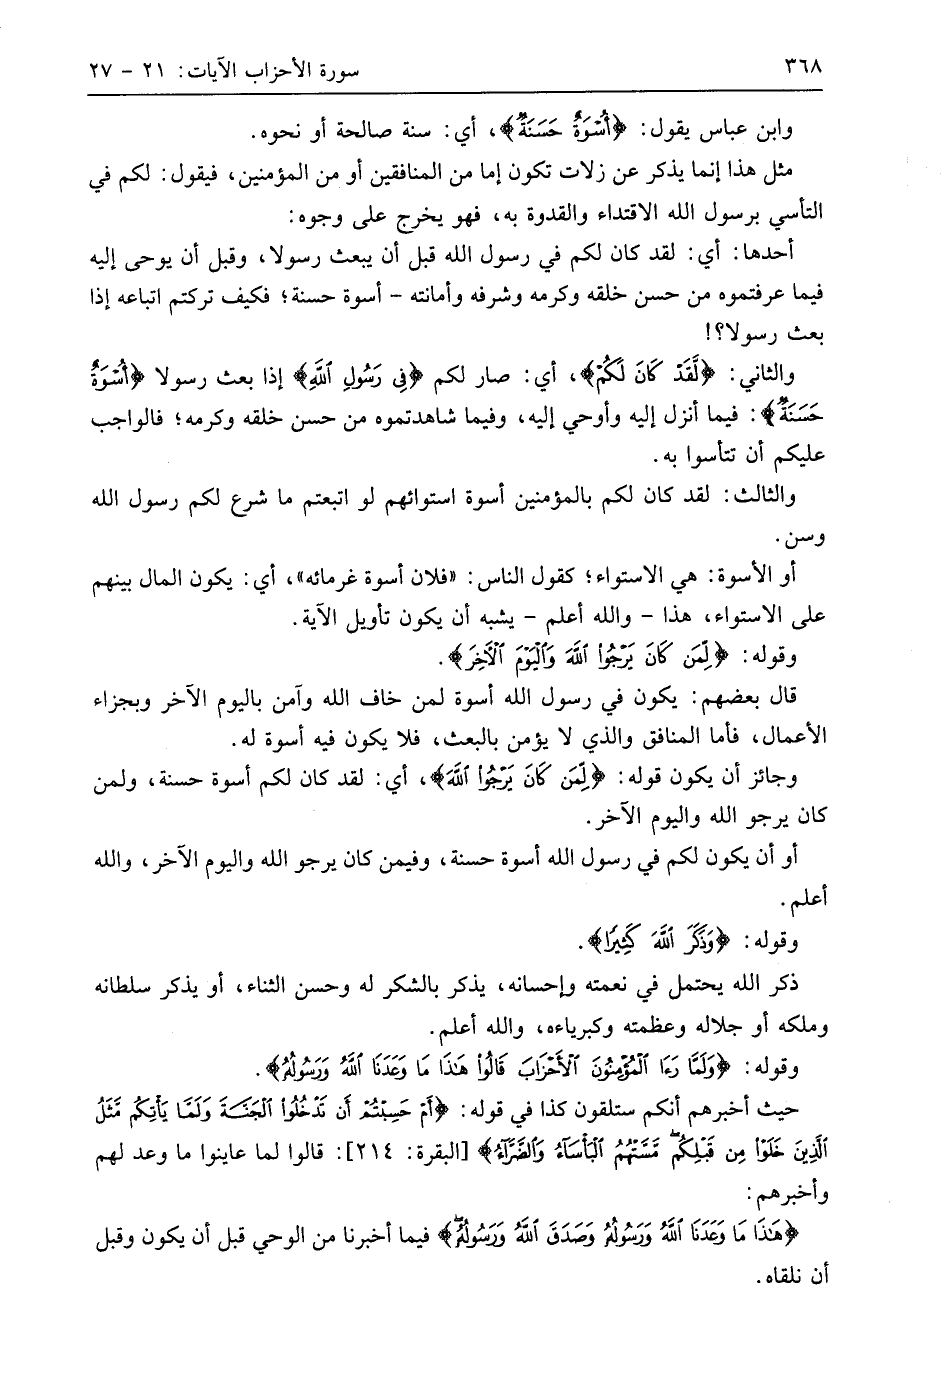 ٣٦٨
سورة الأحزاب الآيات: ٢١ - ٢٧
وابن عباس يقول: ﴿أُسْوَةٌ حَسَنَةٌ﴾، أي: سنة صالحة أو نحوه.
مثل هذا إنما يذكر عن زلات تكون إما من المنافقين أو من المؤمنين، فيقول: لكم في
التأسي برسول الله الاقتداء والقدوة به، فهو يخرج على وجوه:
أحدها: أي: لقد كان لكم في رسول الله قبل أن يبعث رسولا، وقبل أن يوحى إليه
فيما عرفتموه من حسن خلقه وكرمه وشرفه وأمانته - أسوة حسنة؛ فكيف تركتم اتباعه إذا
بعث رسولا؟!
والثاني: ﴿لَّقَدْ كَانَ لَكُمْ﴾، أي: صار لكم ﴿فِي رَسُولِ ٱللَّهِ﴾ إذا بعث رسولا ﴿أُسْوَةٌ
حَسَنَةٌ﴾: فيما أنزل إليه وأوحي إليه، وفيما شاهدتموه من حسن خلقه وكرمه؛ فالواجب
عليكم أن تتأسوا به.
والثالث: لقد كان لكم بالمؤمنين أسوة استوائهم لو اتبعتم ما شرع لكم رسول الله
وسن.
أو الأسوة: هي الاستواء؛ كقول الناس: «فلان أسوة غرمائه»، أي: يكون المال بينهم
على الاستواء، هذا - والله أعلم - يشبه أن يكون تأويل الآية.
وقوله: ﴿لِّمَن كَانَ يَرْجُوا۟ ٱللَّهَ وَٱلْيَوْمَ ٱلْآخِرَ﴾.
قال بعضهم: يكون في رسول الله أسوة لمن خاف الله وآمن باليوم الآخر وبجزاء
الأعمال، فأما المنافق والذي لا يؤمن بالبعث، فلا يكون فيه أسوة له.
وجائز أن يكون قوله: ﴿لِّمَن كَانَ يَرْجُوا۟ ٱللَّهَ﴾، أي: لقد كان لكم أسوة حسنة، ولمن
كان يرجو الله واليوم الآخر.
أو أن يكون لكم في رسول الله أسوة حسنة، وفيمن كان يرجو الله واليوم الآخر، والله
أعلم.
وقوله: ﴿وَذَكَرَ ٱللَّهَ كَثِيرًا﴾.
ذكر الله يحتمل في نعمته وإحسانه، يذكر بالشكر له وحسن الثناء، أو يذكر سلطانه
وملكه أو جلاله وعظمته وكبرياءه، والله أعلم.
وقوله: ﴿وَلَمَّا رَءَا ٱلْمُؤْمِنُونَ ٱلْأَحْزَابَ قَالُوا۟ هَٰذَا مَا وَعَدَنَا ٱللَّهُ وَرَسُولُهُۥ﴾.
حيث أخبرهم أنكم ستلقون كذا في قوله: ﴿أَمْ حَسِبْتُمْ أَن تَدْخُلُوا۟ ٱلْجَنَّةَ وَلَمَّا يَأْتِكُم مَّثَلُ
ٱلَّذِينَ خَلَوْا۟ مِن قَبْلِكُم ۖ مَّسَّتْهُمُ ٱلْبَأْسَآءُ وَٱلضَّرَّآءُ﴾ [البقرة: ٢١٤]: قالوا لما عاينوا ما وعد لهم
وأخبرهم:
﴿هَٰذَا مَا وَعَدَنَا ٱللَّهُ وَرَسُولُهُۥ وَصَدَقَ ٱللَّهُ وَرَسُولُهُۥ ۚ﴾ فيما أخبرنا من الوحي قبل أن يكون وقبل
أن نلقاه.